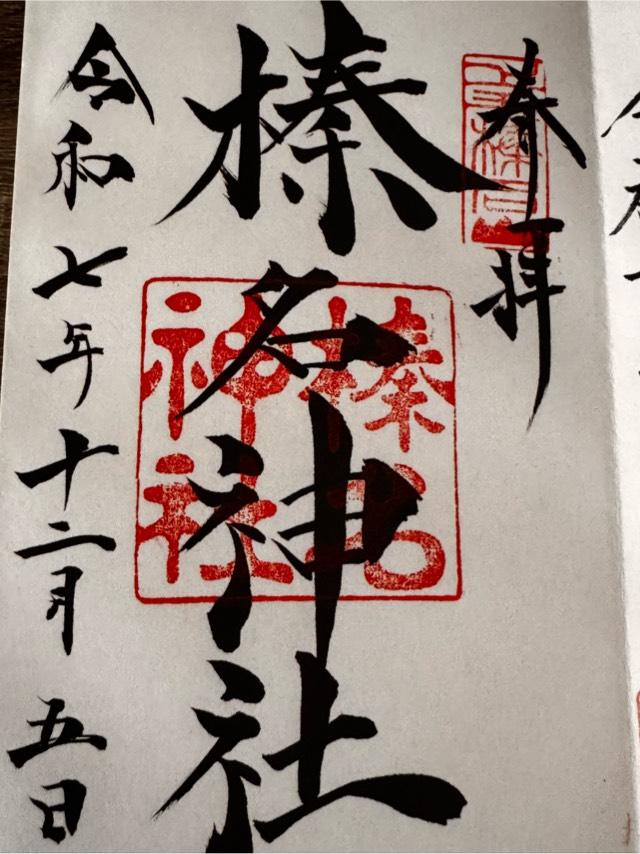 奉拝
榛名神社
榛名
神社
令和七年十二月五日